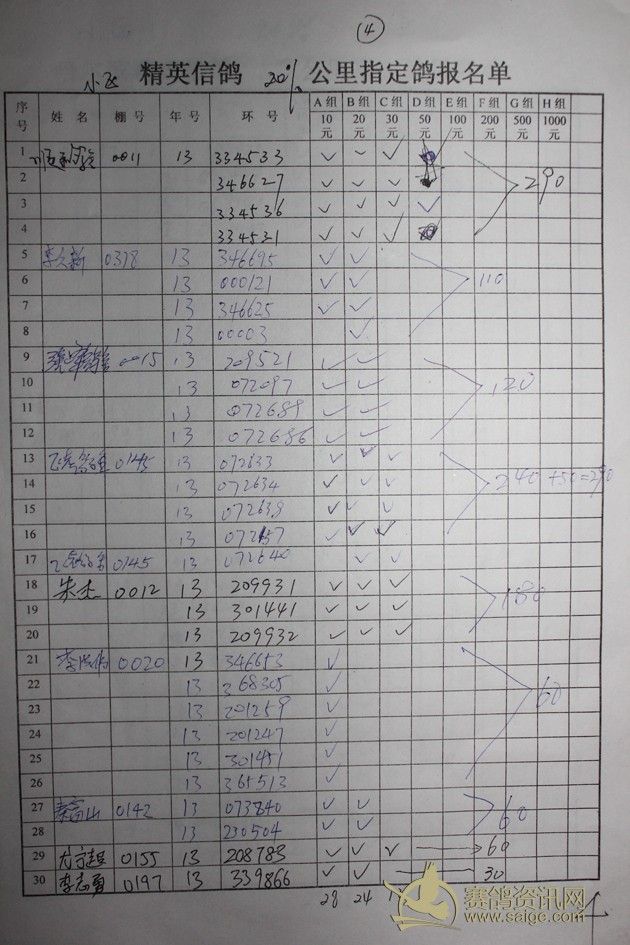 ④
小飞 精英信鸽 30% 公里指定鸽报名单
序号 姓 名 棚 号 年 号 环 号 A组 10元 B组 20元 C组 30元 D组 50元 E组 100元 F组 200元 G组 500元 H组 1000元
1 0011 13 334533 ✓ ✓ ✓
2 346627 ✓ ✓ ✓ 290
3 334536 ✓ ✓ ✓ ✓
4 334531 ✓ ✓ ✓
5 李久新 0378 13 346695 ✓ ✓
6 13 000121 ✓ ✓ 110
7 13 346625 ✓ ✓
8 13 00003 ✓
9 0015 13 209521 ✓ ✓
10 13 072097 ✓ ✓ 120
11 13 072689 ✓ ✓
12 13 072686 ✓ ✓
13 0145 13 072633 ✓ ✓ ✓
14 13 072634 ✓ ✓ ✓ 240 +50=290
15 13 072638 ✓ ✓ ✓
16 13 072157 ✓ ✓ ✓
17 0145 13 072640 ✓ ✓
18 朱杰 0012 13 209931 ✓ ✓ ✓ 180
19 13 301441 ✓ ✓ ✓
20 13 209932 ✓ ✓ ✓
21 0020 13 346653 ✓
22 13 368305 ✓ 60
23 13 201259 ✓
24 13 201247 ✓
25 13 301451 ✓
26 13 365513 ✓
27 秦富山 0142 13 073840 ✓ ✓ 60
28 13 230504 ✓ ✓
29 0155 13 208783 ✓ ✓ ✓ 60
30 李志勇 0197 13 339866 ✓ ✓ 30
28 24
赛鸽资讯网
www.saige.com